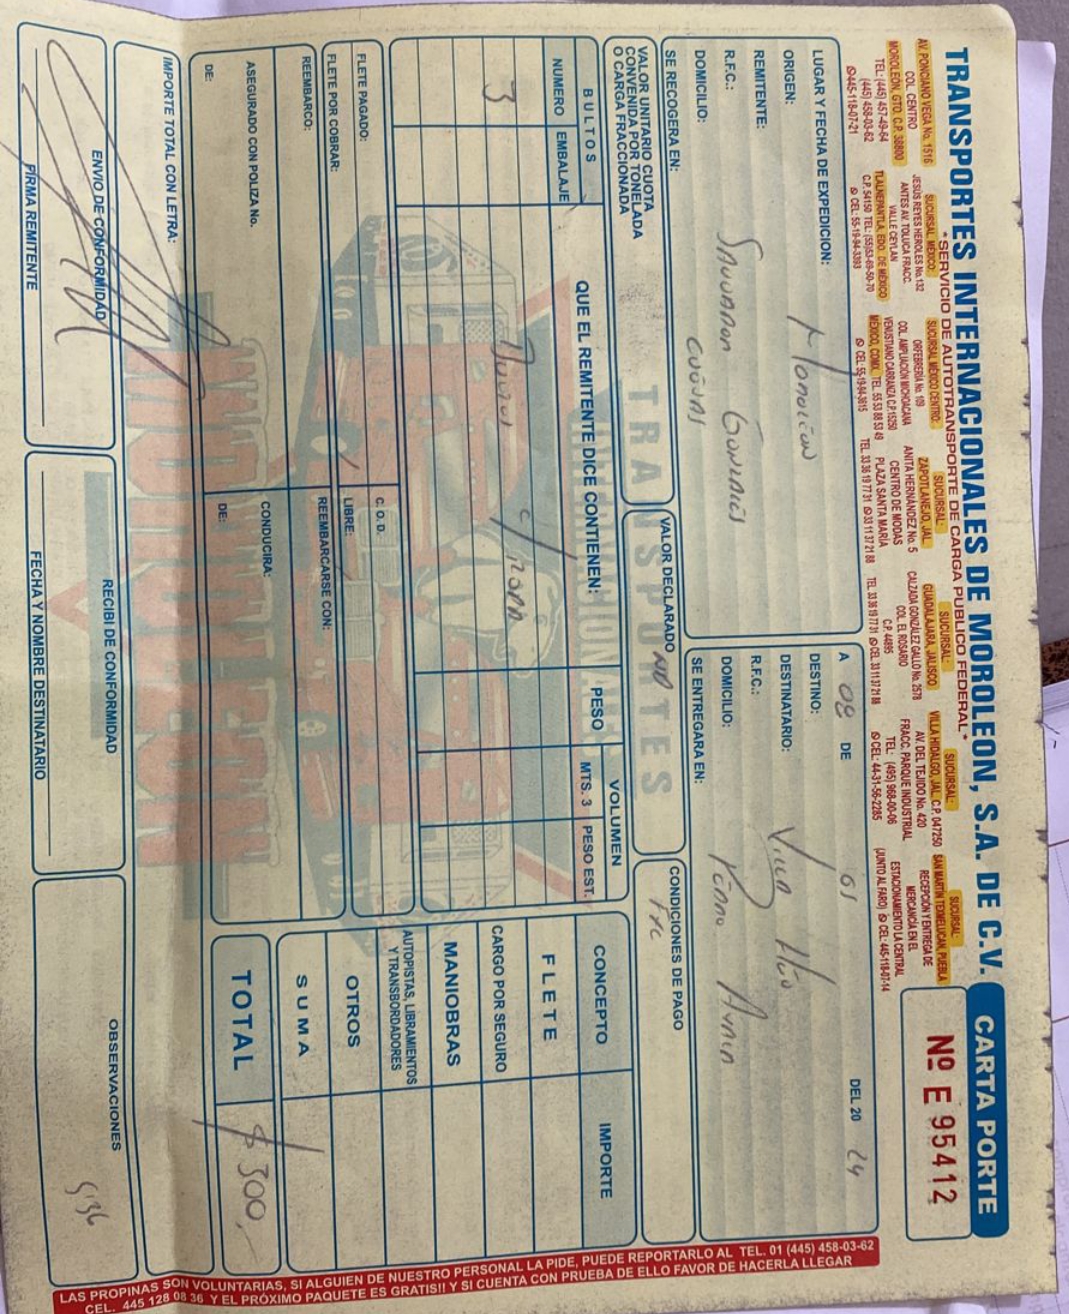 TRANSPORTES INTERNACIONALES DE MOROLEON, S.A. DE C.V.
"SERVICIO DE AUTOTRANSPORTE DE CARGA PUBLICO FEDERAL"
CARTA PORTE
Nº E 95412
AV. PONCIANO VEGA No. 1516
COL. CENTRO
MOROLEÓN, GTO. C.P. 38800
TEL: (445) 457-49-64
(445) 458-03-62
445-118-07-21
SUCURSAL MÉXICO:
JESÚS REYES HEROLES No. 132
ANTES AV. TOLUCA FRACC.
VALLE CEYLAN
TLALNEPANTLA, EDO. DE MÉXICO
C.P. 54150 TEL: (55)53-69-50-70
CEL: 55-19-94-3393
SUCURSAL MÉXICO CENTRO:
ORFEBRERÍA No. 109
COL. AMPLIACIÓN MICHOACANA
VENUSTIANO CARRANZA C.P. 15250
MÉXICO, CDMX. TEL. 55 53 88 53 49
CEL: 55-19-94-3615
SUCURSAL:
ZAPOTLANEJO, JAL.
ANITA HERNÁNDEZ No. 5
CENTRO DE MODAS
PLAZA SANTA MARÍA
TEL. 33 36 19 77 31 33 11 37 21 88
SUCURSAL:
GUADALAJARA, JALISCO
CALZADA GONZÁLEZ GALLO No. 2578
COL. EL ROSARIO
C.P. 44895
TEL. 33 36 19 77 31 CEL. 33 11 37 21 88
SUCURSAL:
VILLA HIDALGO, JAL. C.P. 047250
AV. DEL TEJIDO No. 420
FRACC. PARQUE INDUSTRIAL
TEL: (495) 968-00-06
CEL: 44-31-56-2285
SUCURSAL:
SAN MARTIN TEXMELUCAN, PUEBLA
RECEPCIÓN Y ENTREGA DE
MERCANCÍA EN EL
ESTACIONAMIENTO LA CENTRAL
(JUNTO AL FARO) CEL: 445-118-07-14
LUGAR Y FECHA DE EXPEDICION:
A 08 DE 01 DEL 20 24
ORIGEN: Moroleon
DESTINO: Villa Hgo
REMITENTE:
DESTINATARIO:
R.F.C.: Salvador Gonzales
R.F.C.:
DOMICILIO:
DOMICILIO:
SE RECOGERA EN:
SE ENTREGARA EN:
VALOR UNITARIO CUOTA
CONVENIDA POR TONELADA
O CARGA FRACCIONADA
VALOR DECLARADO ND
CONDICIONES DE PAGO
TRANSPORTES
INTERNACIONALES
MOROLEON
BULTOS
NUMERO EMBALAJE
QUE EL REMITENTE DICE CONTIENEN:
PESO
VOLUMEN
MTS. 3 PESO EST.
CONCEPTO
IMPORTE
3
c/ropa
FLETE
CARGO POR SEGURO
MANIOBRAS
AUTOPISTAS, LIBRAMIENTOS
Y TRANSBORDADORES
OTROS
SUMA
TOTAL $300.-
FLETE PAGADO:
C.O.D.
FLETE POR COBRAR:
LIBRE:
REEMBARCO:
REEMBARCARSE CON:
ASEGURADO CON POLIZA No.
CONDUCIRA:
DE:
DE:
IMPORTE TOTAL CON LETRA:
ENVIO DE CONFORMIDAD
FIRMA REMITENTE
RECIBI DE CONFORMIDAD
FECHA Y NOMBRE DESTINATARIO
OBSERVACIONES
LAS PROPINAS SON VOLUNTARIAS, SI ALGUIEN DE NUESTRO PERSONAL LA PIDE, PUEDE REPORTARLO AL TEL. 01 (445) 458-03-62
CEL. 445 128 08 36 Y EL PRÓXIMO PAQUETE ES GRATIS!! Y SI CUENTA CON PRUEBA DE ELLO FAVOR DE HACERLA LLEGAR